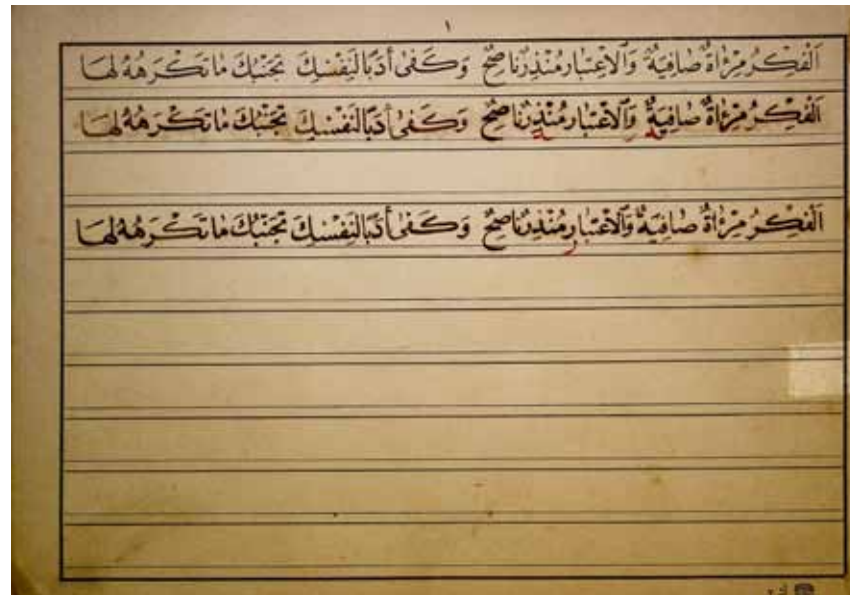 ١
اَلْفِكْرُ مِرْاٰةٌ صٰافِيَةٌ وَالْاِعْتِبٰار مُنْذِرٌ نٰاصِحٌ وَكَفىٰ أَدَبًا لِنَفْسِكَ تَجَنُّبُكَ مٰا تَكْرَهُهُ لَهٰا
اَلْفِكْرُ مِرْاٰةٌ صٰافِيَةٌ وَالْاِعْتِبٰار مُنْذِرٌ نٰاصِحٌ وَكَفىٰ أَدَبًا لِنَفْسِكَ تَجَنُّبُكَ مٰا تَكْرَهُهُ لَهٰا
اَلْفِكْرُ مِرْاٰةٌ صٰافِيَةٌ وَالْاِعْتِبٰار مُنْذِرٌ نٰاصِحٌ وَكَفىٰ أَدَبًا لِنَفْسِكَ تَجَنُّبُكَ مٰا تَكْرَهُهُ لَهٰا